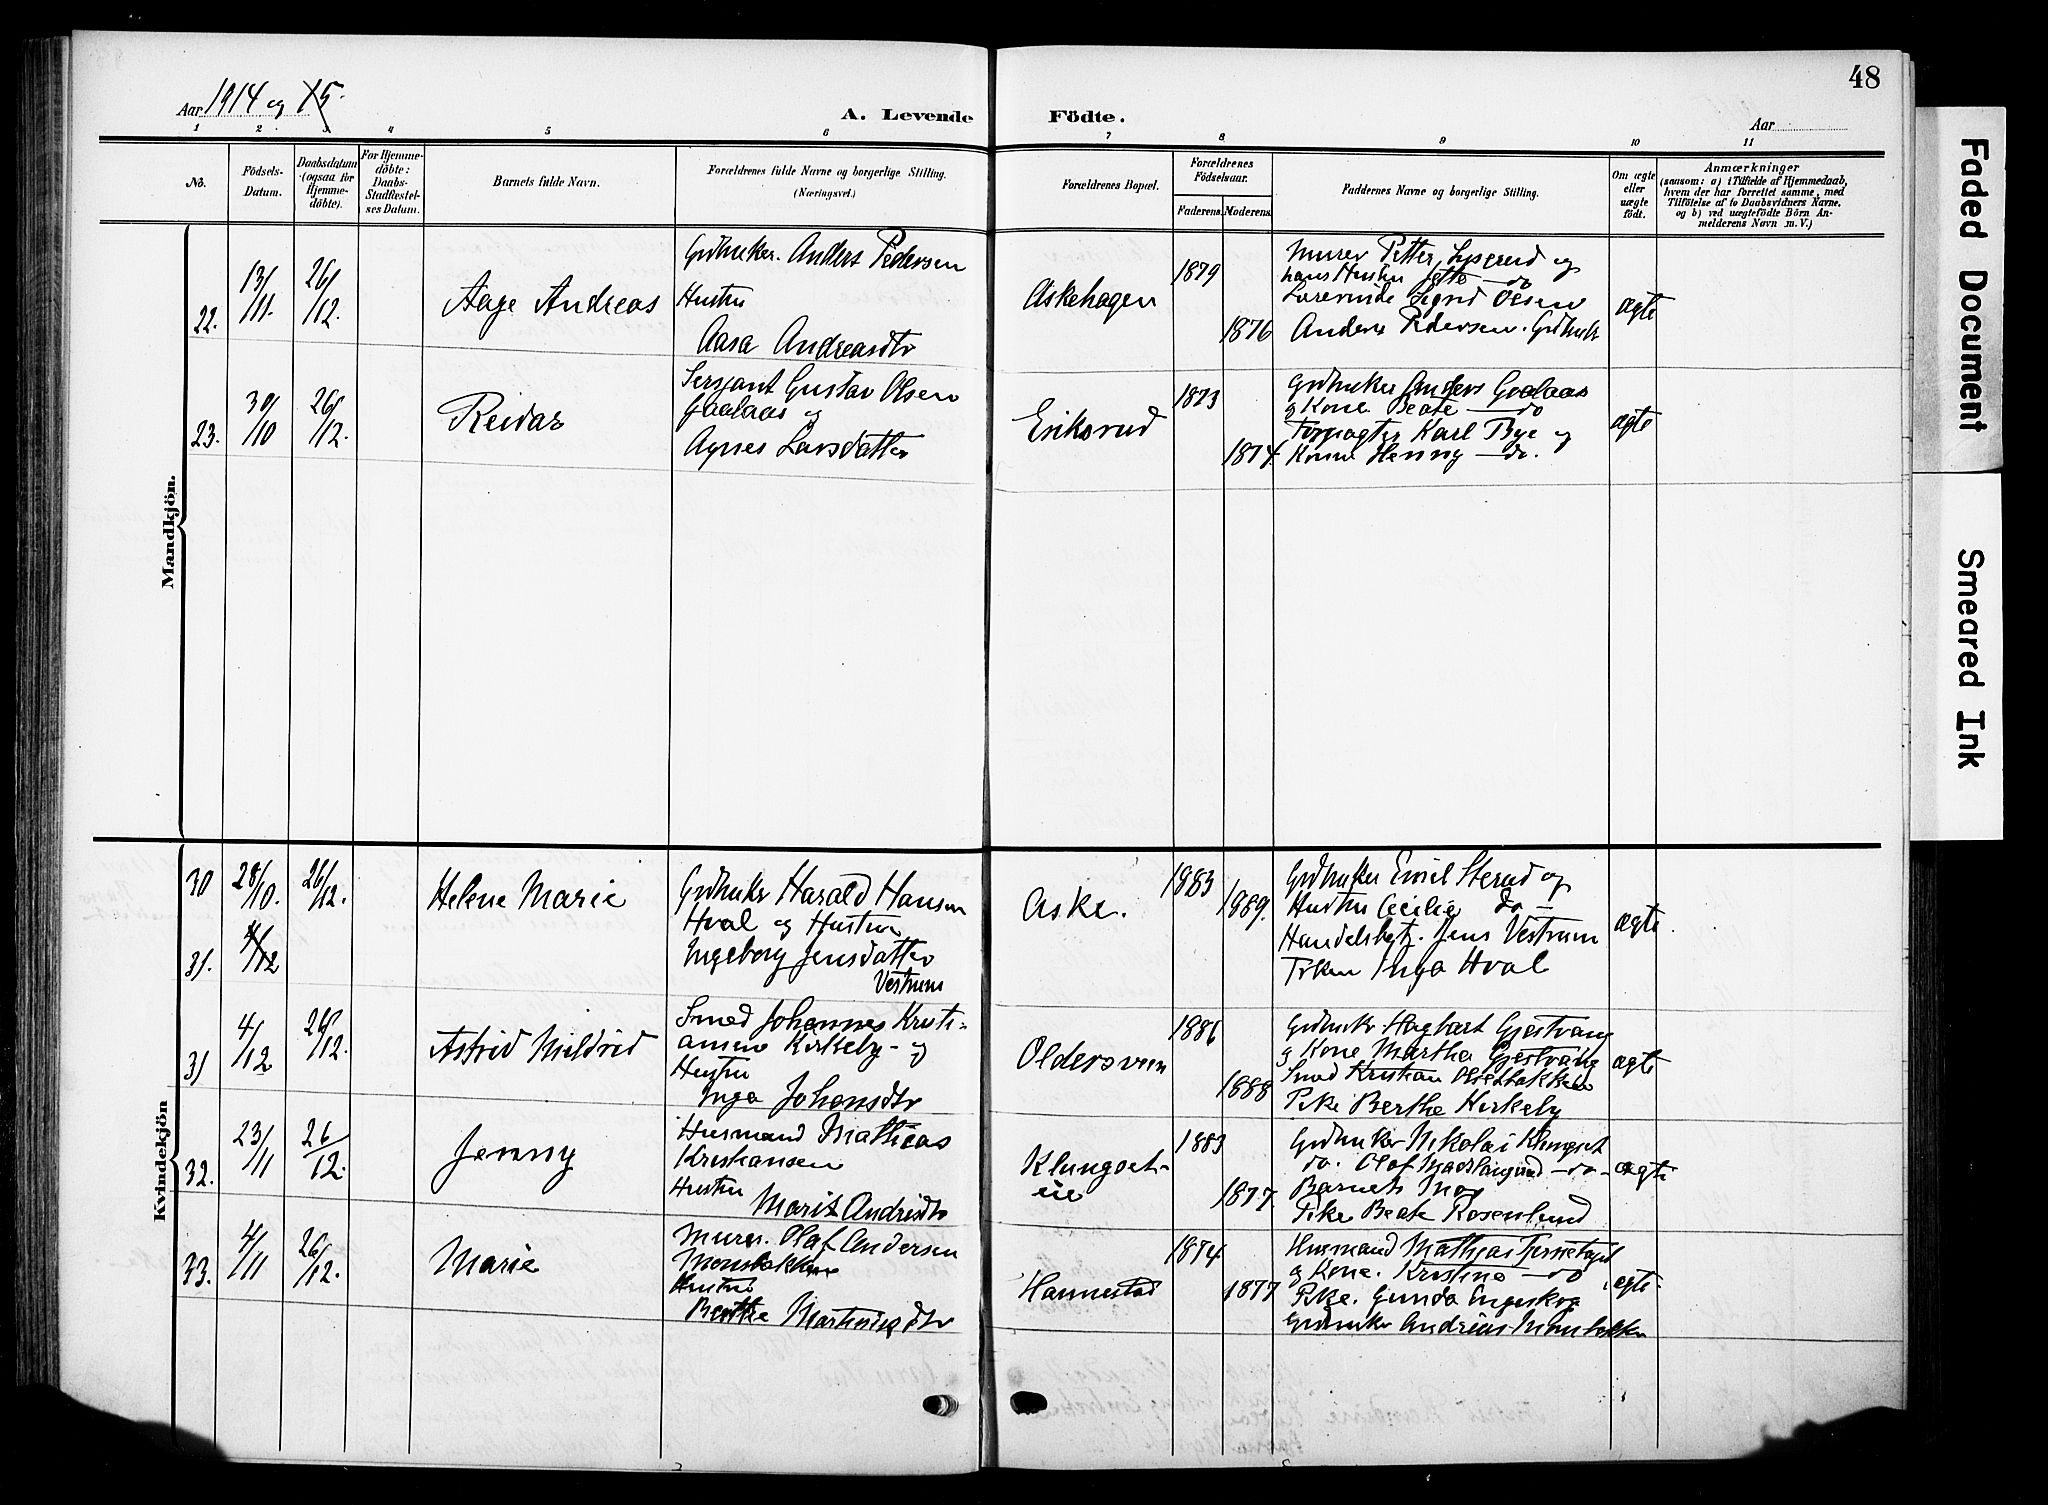 48
Aar 1914 og 15.
A. Levende Födte.
Aar
1 2. 3. 4 5 6 7 8. 9 10 11
No.
Födsels-Datum.
Daabsdatum (ogsaa for Hjemme-döbte).
For Hjemme-döbte: Daabs-Stadfæstel-ses Datum.
Barnets fulde Navn.
Forældrenes fulde Navne og borgerlige Stilling. (Næringsvei.)
Forældrenes Bopæl.
Forældrenes Födselsaar.
Faderens. Moderens.
Faddernes Navne og borgerlige Stilling.
Om ægte eller uægte födt.
Anmærkninger
(saasom: a) i Tilfælde af Hjemmedaab,
hvem der har forrettet samme, med
Tilföielse af to Daabsvidners Navne.
og b) ved uægtefödte Börn An-
melderens Navn m. V.)
Mandkjön.
22. 13/11. 26/12. Aage Andreas
Grdbruker. Anders Pedersen
Hustru
Aasa Andreasdtr
Askehagen 1879 1876
Murer Petter Lyserud og
hans Hustru Jette - do
Lærerinde Sigrid Olsen
Anders Pedersen. Grdbruk
ægte
23. 30/10 26/12. Reidar
Sersjant Gustav Olsen
Gaalaas og
Agnes Larsdatter
Eriksrud 1873 1874.
Grdbruker Anders Gaalaas
og Kone Beate - do
Forpagter Karl Bye og
Kone Henny - do.
ægte
Kvindekjön
30 28/10. 26/12. Helene Marie
Grdbruker Harald Hansen
Hval og Hustru
Ingeborg Jensdatter
Vestrum
Aske. 1883 1889.
Grdbruker Emil Sterud og
Hustru Cecilie do -
Handelsbetj. Jens Vestrum
Pike Inga Hval
ægte.
31. 4/12
31 4/12 26/12. Astrid Mildrid
Smed Johannes Kristi-
ansen Kirkeby - og
Hustru
Inga Johansdtr
Oldersveen 1886 1888
Grdbruker Hagbart Gjestvang
og Kone Martha Gjestvang
Smed Kristian Olsebakken
Pike Berthe Kirkeby
ægte
32. 23/11 26/12. Jenny
Husmand Mathias
Kristiansen
Hustru
Marit Andrisdtr
Klungset-
eie 1883 1877.
Grdbruker Nikolai Klungset
do. Olof - do -
Barnets Mor
Pike Beate Rosenlund
ægte
33. 4/11 26/12. Marie
Murer. Olaf Andersen
Monsbakken
Hustru
Berthe Martinusdtr
Hannestad 1874. 1877
Husmand Mathias
og Kone. Kristine - do
Pike. Gunda Engeskog
Grdbruker Andreas Monsbakken
ægte.
Faded Document
Smeared Ink